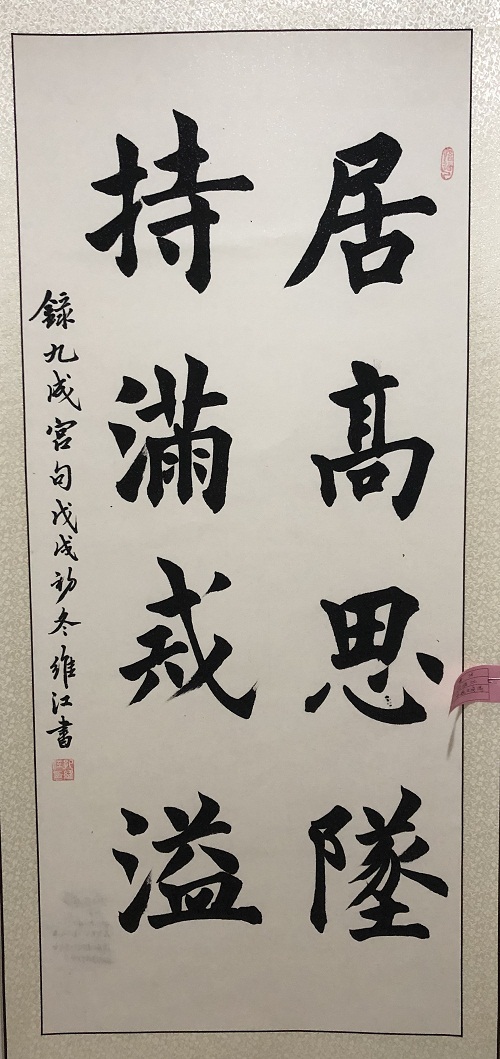 居高思墜
持滿戒溢
録九成宮句戊戌初冬維江書